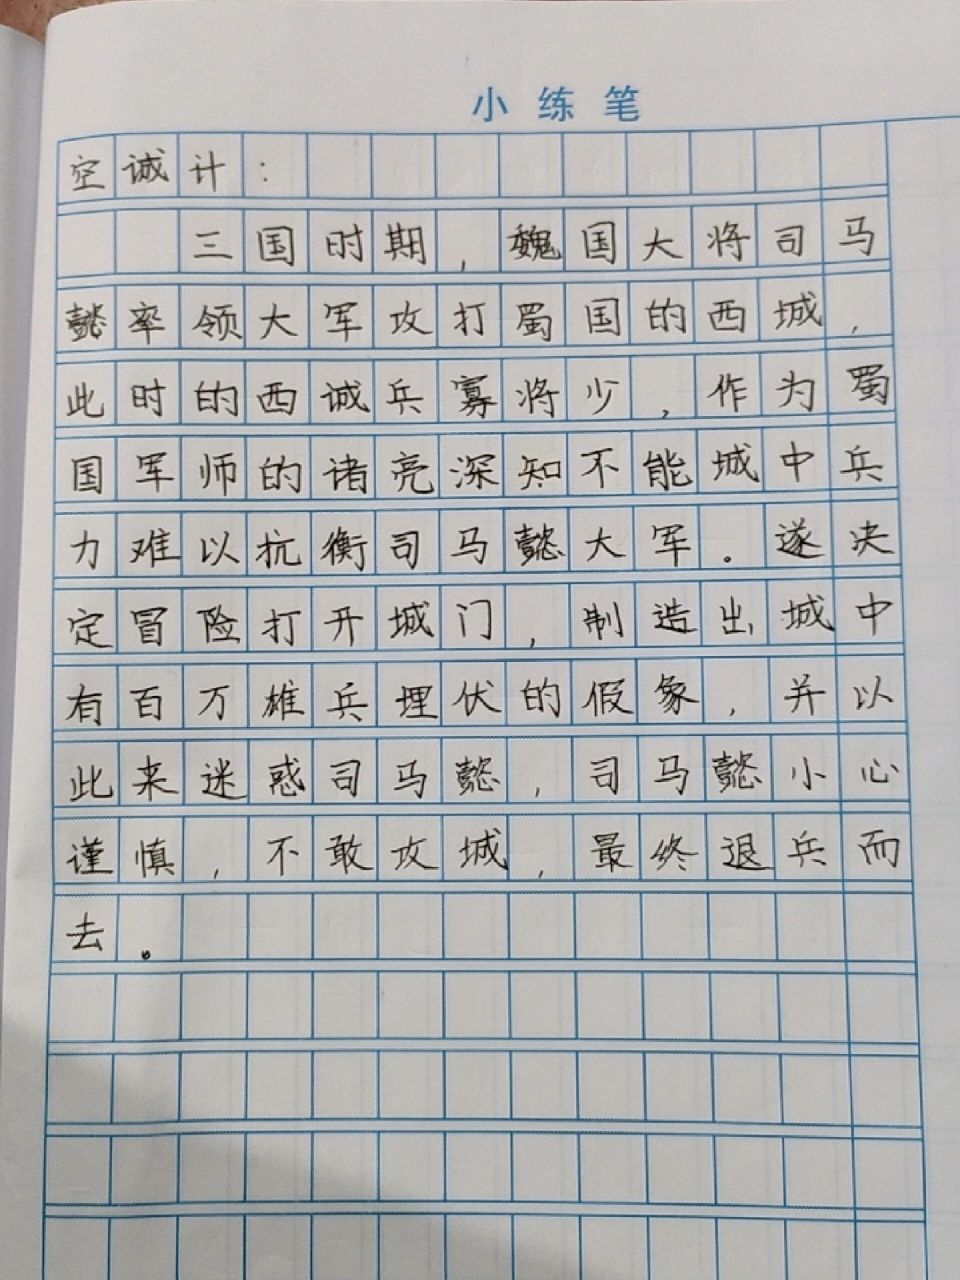 小练笔
空诚计：
三国时期，魏国大将司马
懿率领大军攻打蜀国的西城，
此时的西诚兵寡将少，作为蜀
国军师的诸亮深知不能城中兵
力难以抗衡司马懿大军。遂决
定冒险打开城门，制造出城中
有百万雄兵埋伏的假象，并以
此来迷惑司马懿，司马懿小心
谨慎，不敢攻城，最终退兵而
去。